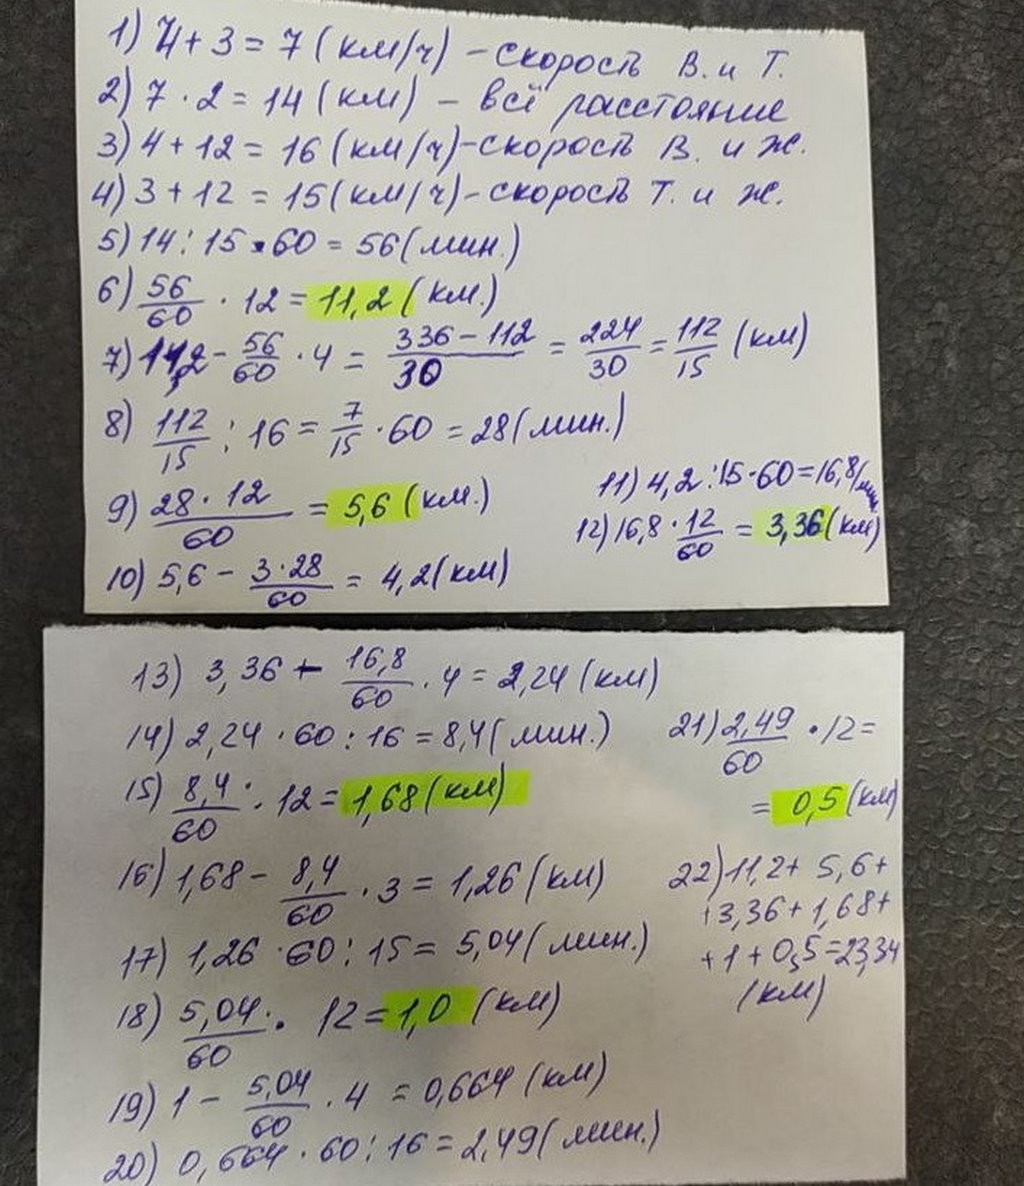 1) 4 + 3 = 7 (км/ч) - скорость В. и Т.
2) 7 · 2 = 14 (км) - всё расстояние
3) 4 + 12 = 16 (км/ч) - скорость В. и Ж.
4) 3 + 12 = 15 (км/ч) - скорость Т. и Ж.
5) 14 : 15 · 60 = 56 (мин.)
6) 56/60 · 12 = 11,2 (км.)
7) 11,2 - 56/60 · 4 = (336 - 112)/30 = 224/30 = 112/15 (км)
8) 112/15 : 16 = 7/15 · 60 = 28 (мин.)
9) (28 · 12)/60 = 5,6 (км.)
10) 5,6 - (3 · 28)/60 = 4,2 (км)
11) 4,2 : 15 · 60 = 16,8 (мин
12) 16,8 · 12/60 = 3,36 (км)
13) 3,36 - 16,8/60 · 4 = 2,24 (км)
14) 2,24 · 60 : 16 = 8,4 (мин.)
15) 8,4/60 · 12 = 1,68 (км)
16) 1,68 - 8,4/60 · 3 = 1,26 (км)
17) 1,26 · 60 : 15 = 5,04 (мин.)
18) 5,04/60 · 12 = 1,0 (км)
19) 1 - 5,04/60 · 4 = 0,664 (км)
20) 0,664 · 60 : 16 = 2,49 (мин.)
21) 2,49/60 · 12 =
= 0,5 (км)
22) 11,2 + 5,6 +
+ 3,36 + 1,68 +
+ 1 + 0,5 = 23,34
(км)